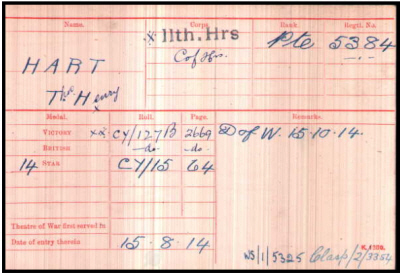 Name. Corps. Rank. Regtl. No.
x 11th. Hrs Pte 5384
HART C of Hrs. -"-
Thos Henry
x
Medal. Roll. Page. Remarks.
VICTORY xx CY/127B 2669 D of W. 15.10.14.
BRITISH -do- -do-
14 STAR CY/15 64
Theatre of War first served in
Date of entry therein 15.8.14
K. 1380.
NS/1/5325 Clasp/2/3354